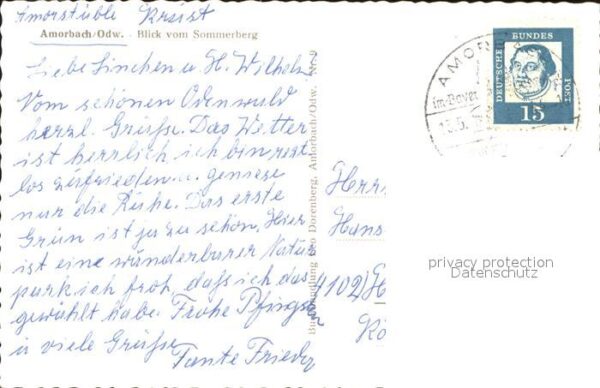 Amorstüble
Amorbach/Odw. - Blick vom Sommerberg
Liebe Linchen u. H. Wilhelm
Vom schönen Odenwald
herzl. Grüße. Das Wetter
ist herrlich ich bin rest
los zufrieden u. geniese
nur die Ruhe. Das erste
Grün ist ja zu schön. Hier
ist eine wunderbarer Natur
park ich froh, daß ich das
gewählt habe. Frohe Pfingsten
u viele Grüße
Tante Frieda
Buchhandlung Leo Dorenberg, Amorbach/Odw. Nr. 9
Herrn
Hans
4102) H
Kö
AMOR
im Bayer
15.5.
DEUTSCHE BUNDESPOST
15
privacy protection
Datenschutz